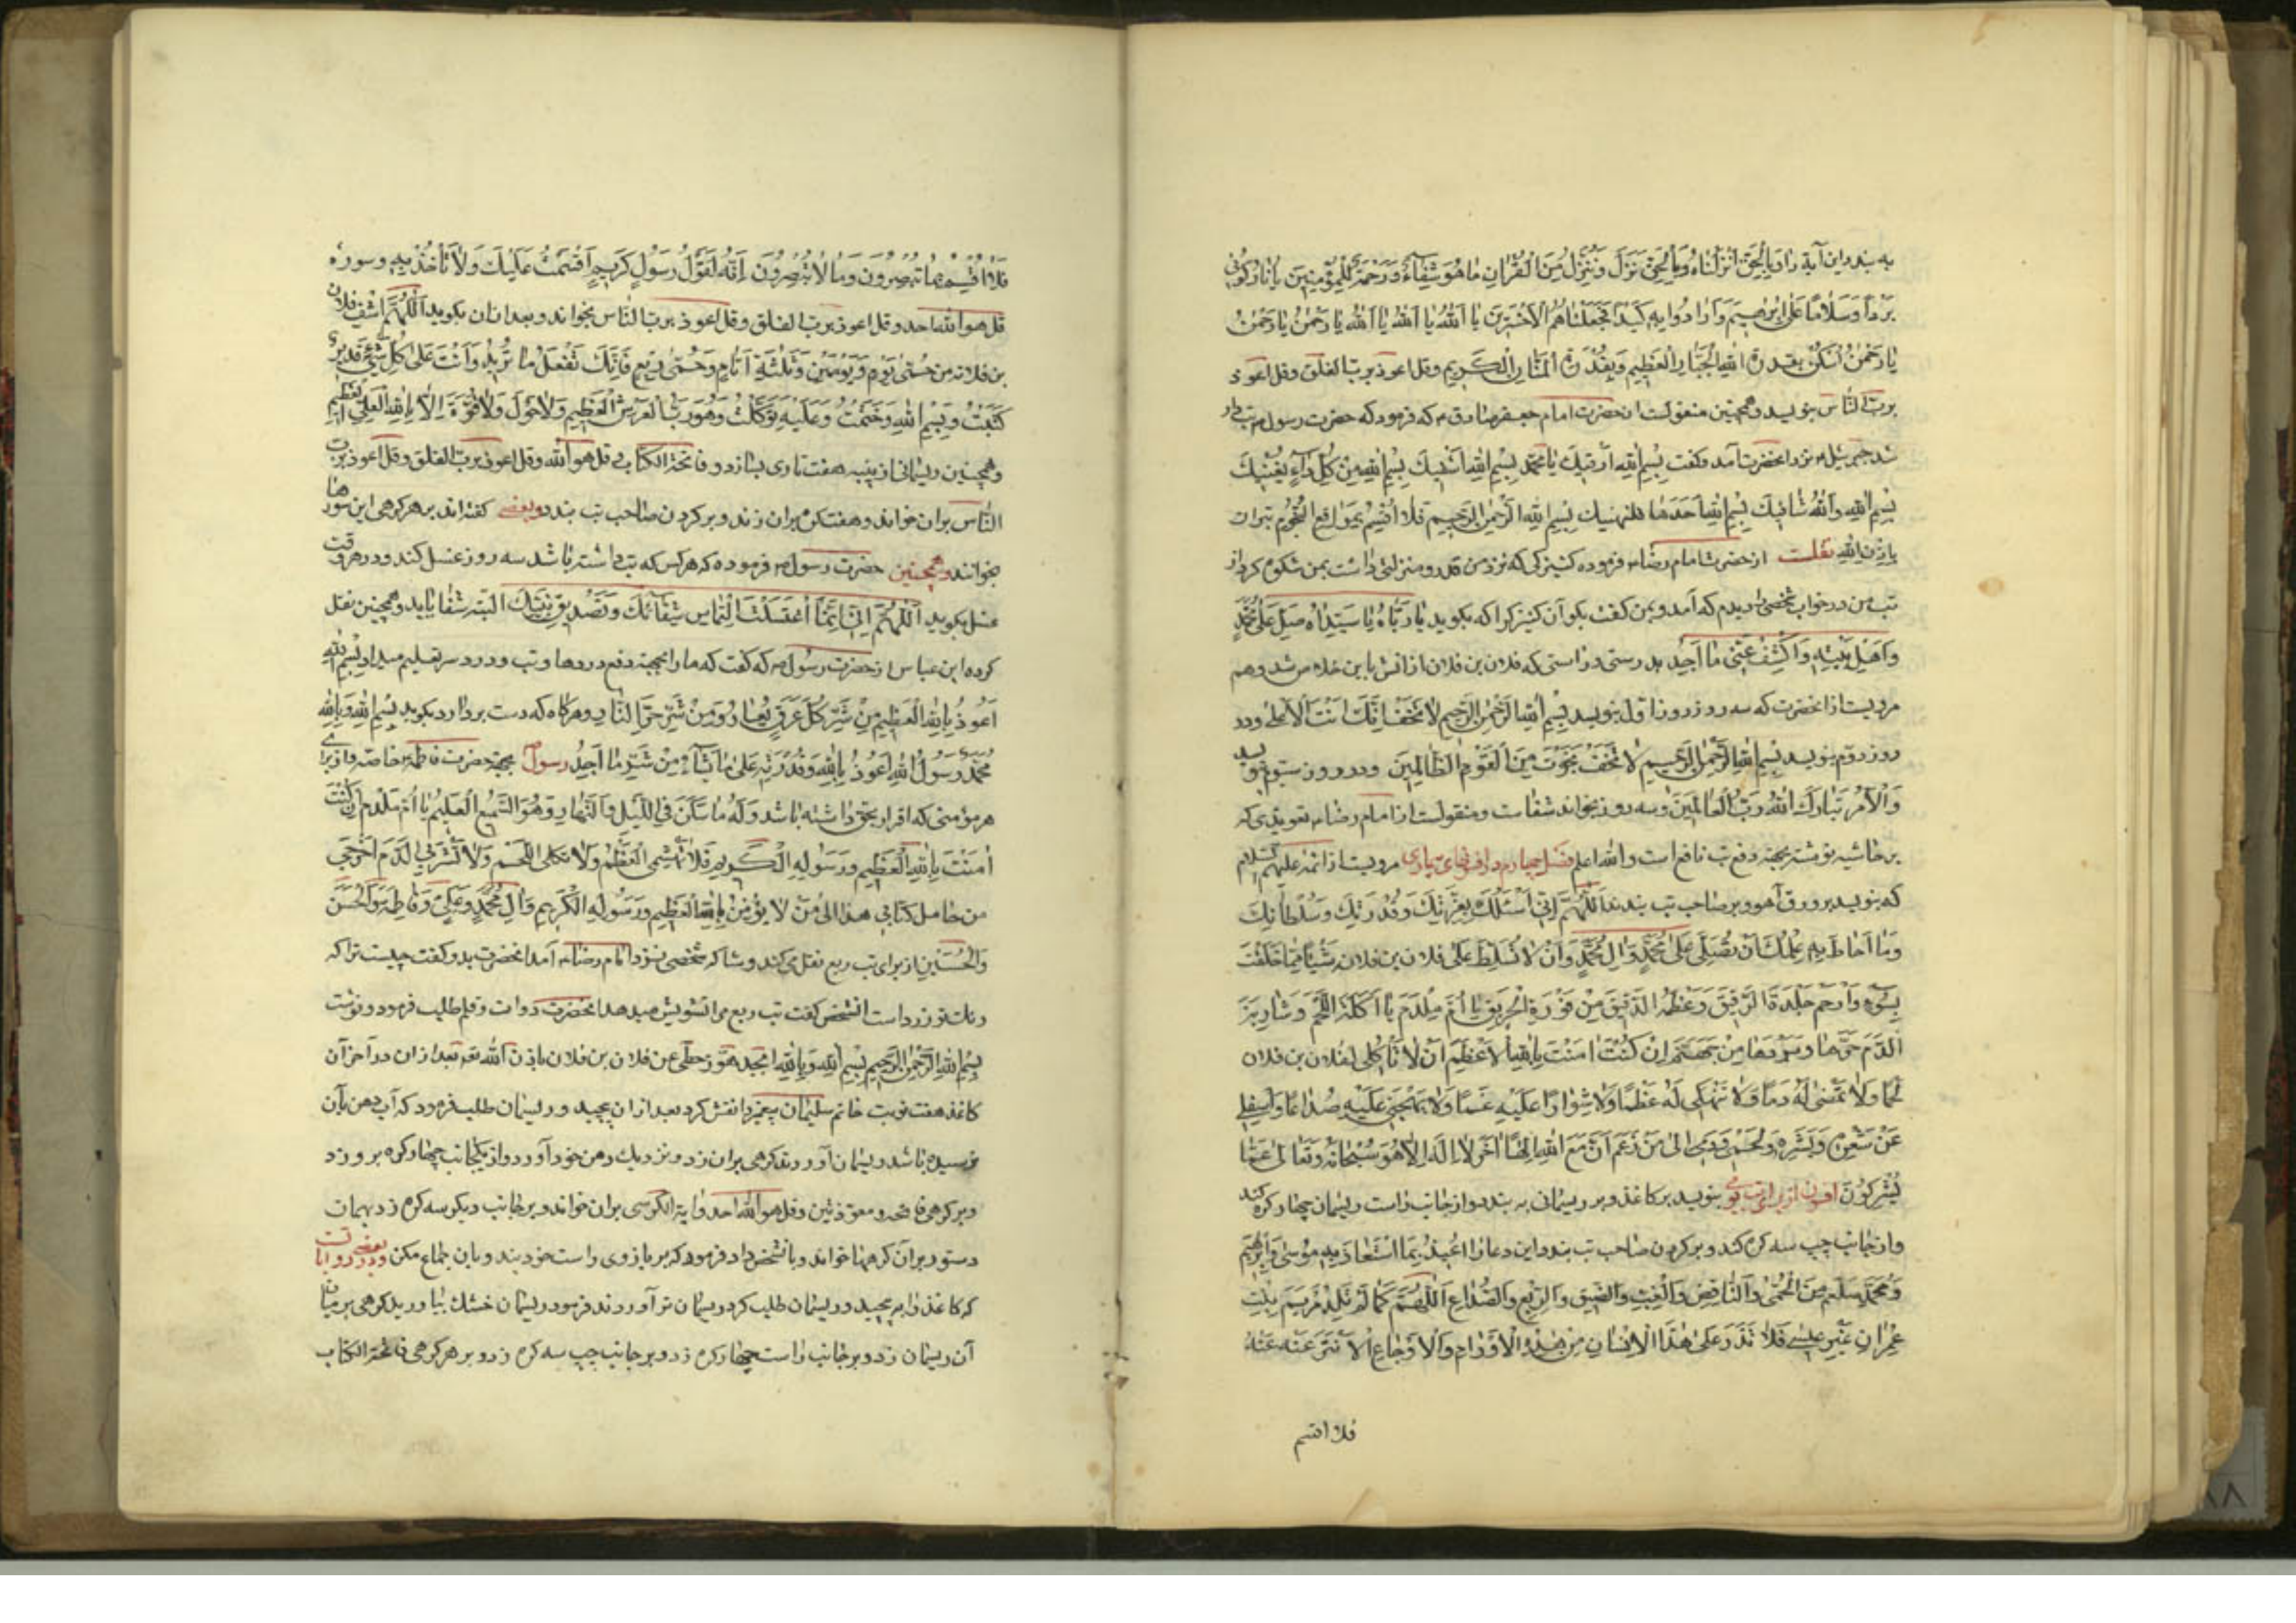 به بندد این آیه را وَبِالْحَقِّ اَنْزَلْنَاهُ وَبِالْحَقِّ نَزَلَ وَنُنَزِّلُ مِنَ الْقُرْاٰنِ مٰا هُوَ شِفٰآءٌ وَرَحْمَةٌ لِلْمُؤْمِنِینَ یٰا نٰارُ کُونِی
بَرْدًا وَسَلٰامًا عَلٰی اِبْرٰهِیمَ وَاَرٰادُوا بِهِ کَیْدًا فَجَعَلْنٰاهُمُ الْاَخْسَرِینَ یٰا اَللّٰهُ یٰا اَللّٰهُ یٰا اَللّٰهُ یٰا رَحْمٰنُ یٰا رَحْمٰنُ
یٰا رَحْمٰنُ اُسْکُنْ بِقُدْرَةِ اللّٰهِ الْجَبّٰارِ الْعَظِیمِ وَبِقُدْرَةِ الْمَنّٰانِ الْکَرِیمِ وقل اعوذ برب الفلق وقل اعوذ
برب النّاس بنویسد وهمچنین منقولست از حضرت امام جعفر صادق ع که فرمود که حضرت رسول ص تب دار
شد جبرئیل ع نزد انحضرت آمد وگفت بِسْمِ اللّٰهِ اَرْقِیكَ یٰا مُحَمَّدُ بِسْمِ اللّٰهِ اَشْفِیكَ بِسْمِ اللّٰهِ مِنْ کُلِّ دٰآءٍ یُعْنِیكَ
بِسْمِ اللّٰهِ وَاللّٰهُ شٰافِیكَ بِسْمِ اللّٰهِ خُذْهٰا فلتهنیك بِسْمِ اللّٰهِ الرَّحْمٰنِ الرَّحِیمِ فَلٰا اُقْسِمُ بِمَوٰاقِعِ النُّجُومِ لتبران
بِاِذْنِ اللّٰهِ نقلست از حضرت امام رضا ع فرموده کنیزکی که نزد من قدر ومنزلتی داشت بمن شکوه کرد از
تب من در خواب شخصی را دیدم که آمد وبمن گفت بگو آن کنیزك را که بگوید یٰا رَبّٰاهُ یٰا سَیِّدٰاهُ صَلِّ عَلٰی مُحَمَّدٍ
وَاَهْلِ بَیْتِهِ وَاکْشِفْ عَنّی مٰا اَجِدُ بدرستی وراستی که فلان بن فلان از آتش باین خلاص شد وهم
مرویست از انحضرت که سه روز روز اول بنویسد بِسْمِ اللّٰهِ الرَّحْمٰنِ الرَّحِیمِ لٰا تَخَفْ اِنَّكَ اَنْتَ الْاَعْلٰی ودر
روز دوّم بنویسد بِسْمِ اللّٰهِ الرَّحْمٰنِ الرَّحِیمِ لٰا تَخَفْ نَجَوْتَ مِنَ الْقَوْمِ الظّٰالِمِینَ ودر روز سیّوم
وَالْاَمْرُ تَبٰارَكَ اللّٰهُ رَبُّ الْعٰالَمِینَ وسه روز بخواند شفاست ومنقولست از امام رضا ع تعویذی که
بر حاشیه نوشته بجهة دفع تب نافع است والله اعلم فصل چهارم در افسونهای مرویست از ائمه علیهم السلام
که بنویسد بر ورق آهو وبر صاحب تب بندند اَللّٰهُمَّ اِنّی اَسْئَلُكَ بِعِزَّتِكَ وَقُدْرَتِكَ وَسُلْطٰانِكَ
وَمٰا اَحٰاطَ بِهِ عِلْمُكَ اَنْ تُصَلِّیَ عَلٰی مُحَمَّدٍ وَاٰلِ مُحَمَّدٍ وَاَنْ لٰا تُسَلِّطَ عَلٰی فلان بن فلان شَیْئًا مِمّٰا خَلَقْتَ
بِسُوءٍ وَارْحَمْ جِلْدَهُ الرَّقِیقَ وَعَظْمَهُ الدَّقِیقَ مِنْ فَوْرَةِ الْحَرِیقِ یٰا اُمَّ مِلْدَمٍ یٰا اٰکِلَةَ اللَّحْمِ وَشٰارِبَةَ
الدَّمِ حَرُّهٰا وبَرْدُهٰا مِنْ جَهَنَّمَ اِنْ کُنْتِ اٰمَنْتِ بِاللّٰهِ الْاَعْظَمِ اَنْ لٰا تَاْکُلِی لفلان بن فلان
لَحْمًا وَلٰا تَمَصّی لَهُ دَمًا وَلٰا تَنْهَکِی لَهُ عَظْمًا وَلٰا تُثَوِّرِی عَلَیْهِ غَمًّا وَلٰا تُهَیِّجِی عَلَیْهِ صُدٰاعًا وَانْتَقِلِی
عَنْ شَعْرِهِ وَبَشَرِهِ ولَحْمِهِ وَدَمِهِ اِلٰی مَنْ زَعَمَ اَنَّ مَعَ اللّٰهِ اِلٰهًا اٰخَرَ لٰا اِلٰهَ اِلّٰا هُوَ سُبْحٰانَهُ وَتَعٰالٰی عَمّٰا
یُشْرِکُونَ افسون از برای تب بنویسد بر کاغذ وبر ریسمانی به بندد واز جانب راست ریسمان چهار گره کند
واز جانب چپ سه گره کند وبر گردن صاحب تب بندد واین دعا را اُعِیذُ بِمَا اسْتَعٰاذَ بِهِ مُوسٰی وَاِبْرٰهِیمُ
وَمُحَمَّدٌ صلعم مِنَ الْحُمّٰی وَالنّٰافِضِ وَالْغِبِّ وَالْعَتِیقِ وَالرِّبْعِ وَالصُّدٰاعِ اَللّٰهُمَّ کَمٰا لَمْ تَلِدْ مَرْیَمُ بِنْتُ
عِمْرٰانَ غَیْرَ عِیسٰی فَلٰا تَذَرْ عَلٰی هٰذَا الْاِنْسٰانِ مِنْ هٰذِهِ الْاَوْرٰامِ وَالْاَوْجٰاعِ اِلّٰا نَزَعْتَهُ عَنْهُ
فلا اقسم
فَلٰا اُقْسِمُ بِمٰا تُبْصِرُونَ وَمٰا لٰا تُبْصِرُونَ اِنَّهُ لَقَوْلُ رَسُولٍ کَرِیمٍ اَقْسَمْتُ عَلَیْكَ وَلٰا تَأْخُذْبِیهِ وسورهٔ
قل هو الله احد وقل اعوذ برب الفلق وقل اعوذ برب النّاس بخواند وبعد از ان بگوید اَللّٰهُمَّ اشْفِ فلان
بن فلانه من حُمّٰی یَوْمٍ وَیَوْمَیْنِ وَثَلٰثَةِ اَیّٰامٍ وَحُمّٰی رِبْعٍ فَاِنَّكَ تَفْعَلُ مٰا تُرِیدُ وَاَنْتَ عَلٰی کُلِّ شَیْءٍ قَدِیرٌ
کَتَبْتُ وَبِسْمِ اللّٰهِ وَخَتَمْتُ وَعَلَیْهِ تَوَکَّلْتُ وَهُوَ رَبُّ الْعَرْشِ الْعَظِیمِ وَلٰا حَوْلَ وَلٰا قُوَّةَ اِلّٰا بِاللّٰهِ الْعَلِیِّ الْعَظِیمِ
وهمچنین ریسمانی از پنبه هفت تاری بسازد وفاتحة الکتاب وقل هو الله وقل اعوذ برب الفلق وقل اعوذ برب
النّاس بران خواند وهفت گره بران زند وبر گردن صاحب تب بندد وبعضی گفته‌اند بر هر گرهی این سورها
بخوانند وهمچنین حضرت رسول ص فرموده که هر کس که تب داشته باشد سه روز غسل کند ودر هر وقت
غسل بگوید اَللّٰهُمَّ اِنّی اِنَّمٰا اغْتَسَلْتُ الْتِمٰاسَ شِفٰائِكَ وَتَصْدِیقَ نَبِیِّكَ البته شفا یابد وهمچنین نقل
کرده ابن عباس از حضرت رسول ص که گفت که ما را بجهة دفع دردها وتب ودرد سر تعلیم میداد بِسْمِ اللّٰهِ
اَعُوذُ بِاللّٰهِ الْعَظِیمِ مِنْ شَرِّ کُلِّ عِرْقٍ نَعّٰارٍ وَمِنْ شَرِّ حَرِّ النّٰارِ وهرگاه که دست بردارد بگوید بِسْمِ اللّٰهِ وَبِاللّٰهِ
مُحَمَّدٌ رَسُولُ اللّٰهِ اَعُوذُ بِاللّٰهِ وَقُدْرَتِهِ عَلٰی مٰا یَشٰآءُ مِنْ شَرِّ مٰا اَجِدُ رسول بجهة حضرت فاطمه خاصه واز برای
هر مؤمنی که اقرار بحق داشته باشد وَلَهُ مٰا سَکَنَ فِی اللَّیْلِ وَالنَّهٰارِ وَهُوَ السَّمِیعُ الْعَلِیمُ یٰا اُمَّ مِلْدَمٍ اِنْ کُنْتِ
اٰمَنْتِ بِاللّٰهِ الْعَظِیمِ وَرَسُولِهِ الْکَرِیمِ فَلٰا تَهْشِمِی الْعَظْمَ وَلٰا تاکلی اللَّحْمَ وَلٰا تَشْرَبِی الدَّمَ اُخْرُجِی
من حٰامِلِ کِتٰابِی هٰذٰا اِلٰی مَنْ لٰا یُؤْمِنُ بِاللّٰهِ الْعَظِیمِ وَرَسُولِهِ الْکَرِیمِ وَاٰلِ مُحَمَّدٍ وَعَلِیٍّ وَفٰاطِمَةَ وَالْحَسَنِ
وَالْحُسَیْنِ از برای تب ربع نقل میکند وشا که شخصی نزد امام رضا ع آمد انحضرت بدو گفت چیست ترا که
رنك تو زرد است انشخص گفت تب ربع مرا تشویش میدهد انحضرت دوات وقلم طلب فرمود ونوشت
بِسْمِ اللّٰهِ الرَّحْمٰنِ الرَّحِیمِ بِسْمِ اللّٰهِ وَبِاللّٰهِ ابجد هوز حطی عن فلان بن فلان باذن الله تع بعد از ان در آخر آن
کاغذ هفت نوبت خاتم سلیمان پیغمبر را نقش کرد بعد از ان پیچید وریسمان طلب فرمود که آب دهن بآن
نرسیده باشد ریسمان آوردند گرهی بران زد ونزدیك دهن خود آورد واز یکجانب چهار گره برو زد
وبر هر گرهی فاتحه ومعوذتین وقل هو الله احد وآیة الکرسی بران خواند وبر جانب دیگر سه گره زد بهمان
دستور بر آن گرهها خواند وبانشخص داد فرمود که بر بازوی راست خود بند وباین جماع مکن ودر بعضی روایات
که کاغذ را به پیچید وریسمان طلب کرد ریسمان تر آوردند فرمود ریسمان خشك بیاورید گرهی بر میان
آن ریسمان زد وبر جانب راست چهار گره زد وبر جانب چپ سه گره زد وبر هر گرهی فاتحة الکتاب